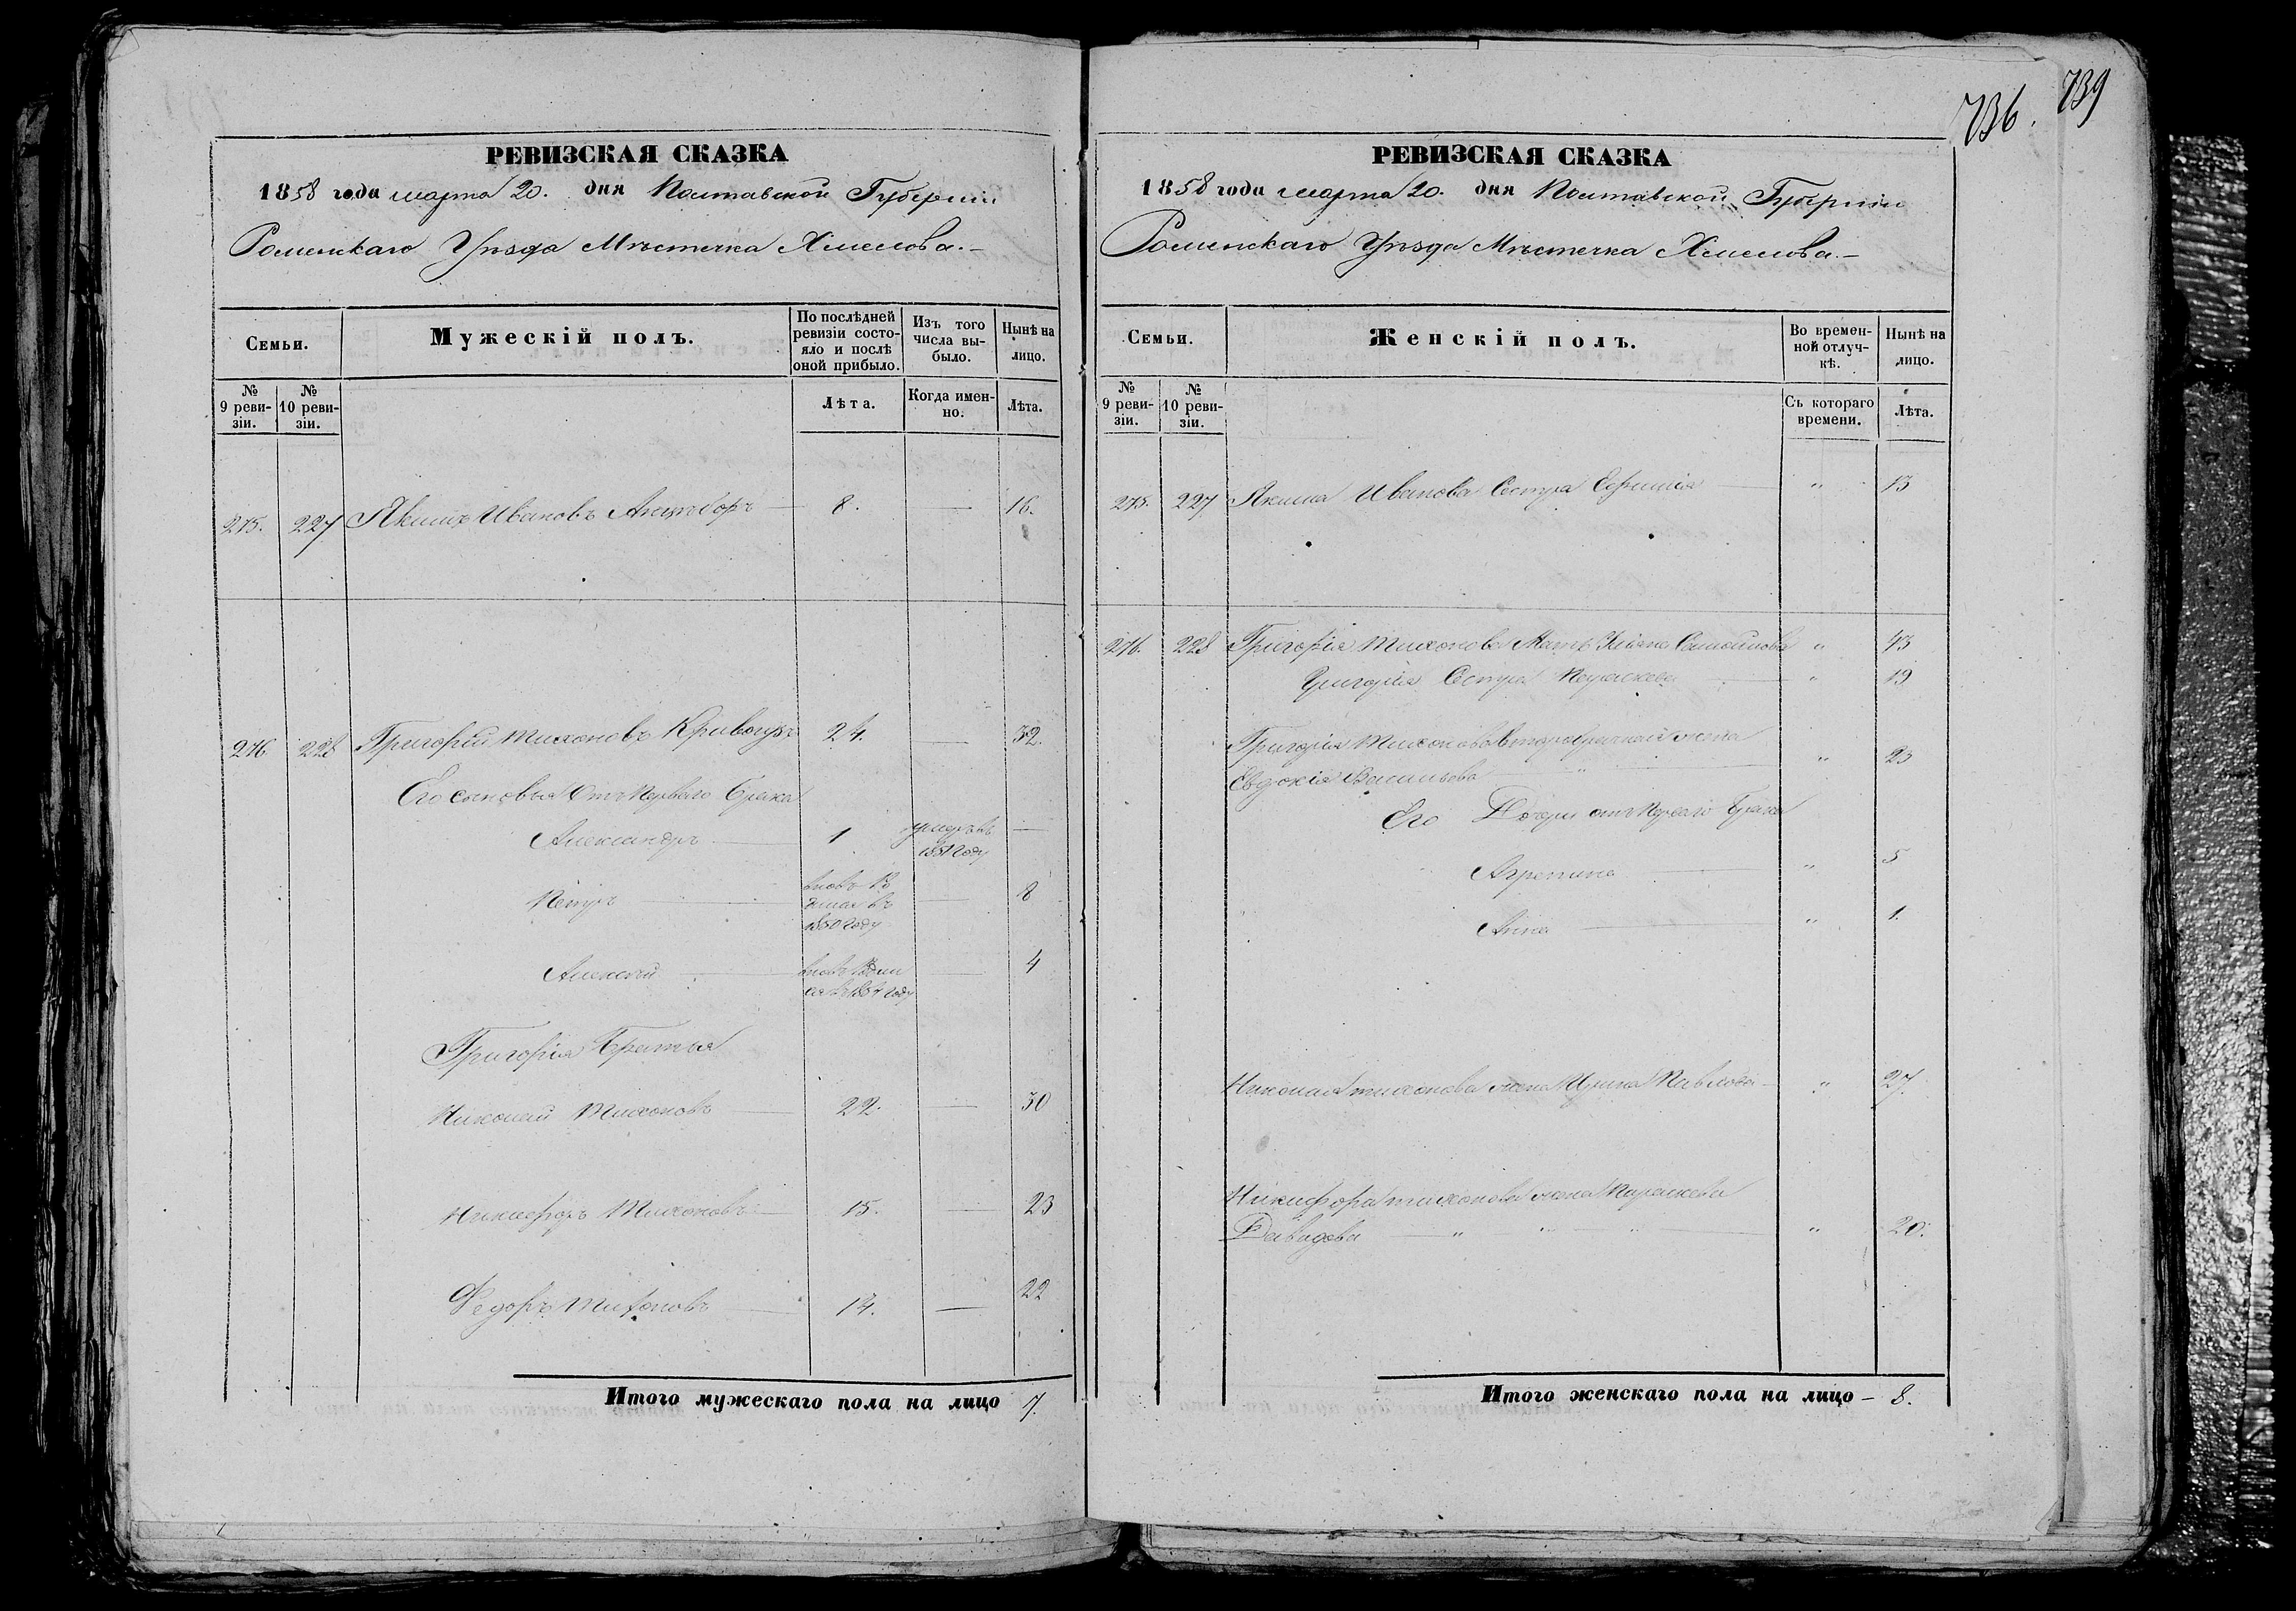 РЕВИЗСКАЯ СКАЗКА
1858 года марта 20. дня Полтавской Губерніи
Роменскаго Уѣзда Мѣстечка Хмелова.—
Семьи.
Мужескій полъ.
По послѣдней ревизіи состояло и послѣ оной прибыло.
Изъ того числа выбыло.
Нынѣ на лицо.
№ 9 ревизіи.
№ 10 ревизіи.
Лѣта.
Когда именно.
Лѣта.
275. 227 Якимъ Ивановъ — 8. — 16.
276 228 Григорій Тихоновъ 24. — 32.
Его сыновья отъ Перваго брака
Александръ — 1 умеръ въ 1851 году —
Петръ — 1850 году — 8
Алексѣй — 1854 году — 4
Григорія Братья
Николай Тихоновъ — 22. — 30
Никифоръ Тихоновъ — 15. — 23
Федоръ Тихоновъ — 14. — 22
Итого мужескаго пола на лицо 7.
736. 739
РЕВИЗСКАЯ СКАЗКА
1858 года марта 20. дня Полтавской Губерніи
Роменскаго Уѣзда Мѣстечка Хмелова.—
Семьи.
Женскій полъ.
Во временной отлучкѣ.
Нынѣ на лицо.
№ 9 ревизіи.
№ 10 ревизіи.
Съ котораго времени.
Лѣта.
275. 227 Якима Иванова Сестра Евфимія — " 13
276. 228 Григорія Тихонова Мать Самойлова " 43
Григорія Сестра Параскева — " 19
Григорія Тихонова второбрачная жена
Евдокія Васильева — " 23
Его Дочери отъ Перваго брака
Агрепина — " 5
Анна — " 1.
Николая Тихонова жена Ирина Павлова — " 27.
Никифора Тихонова жена Параскева
Давидова — " " 20.
Итого женскаго пола на лицо — 8.